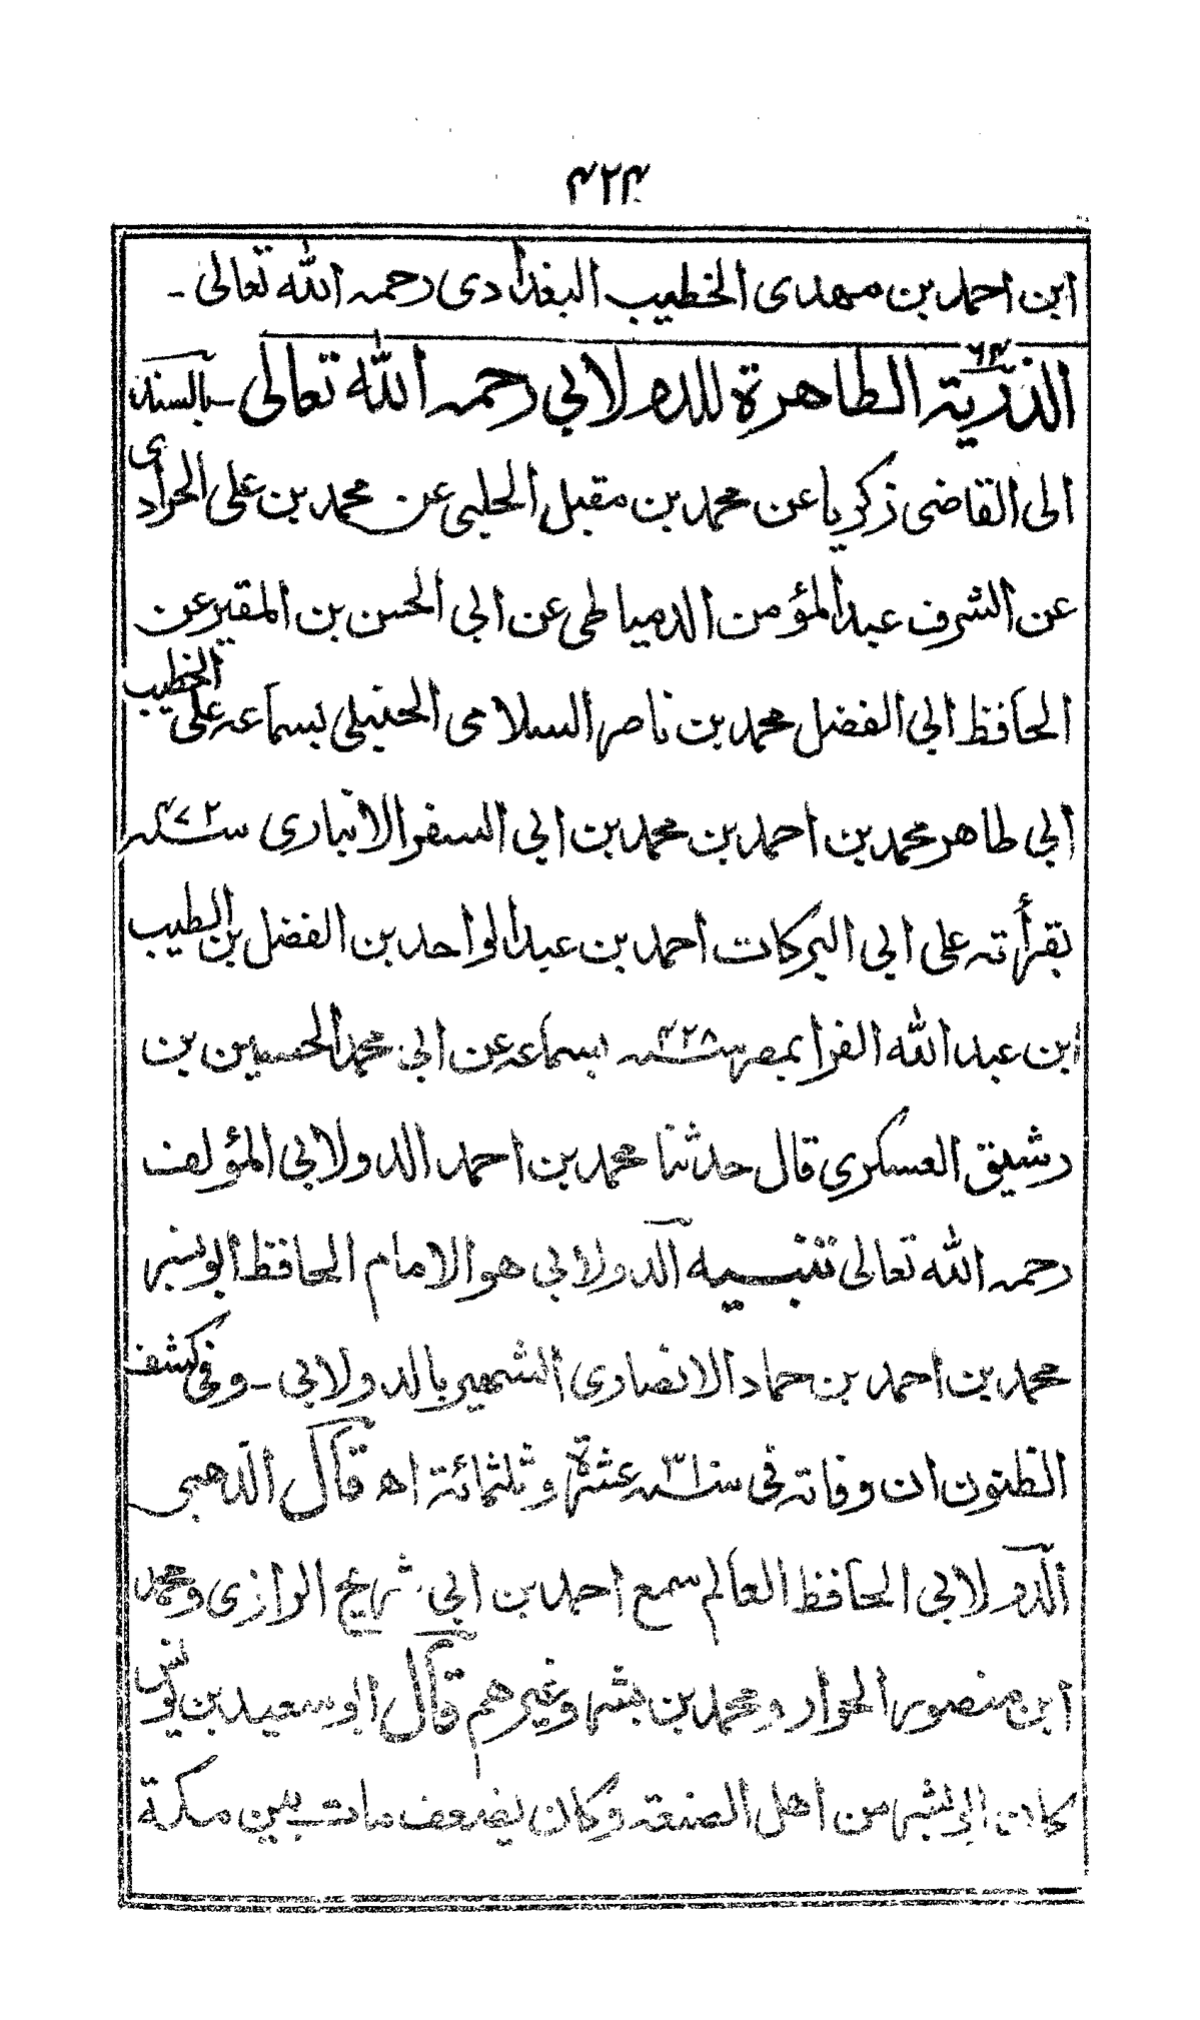 ۴۲۴
ابن احمد بن مهدى الخطيب البغدادى رحمه الله تعالى -
۶۴
الذرية الطاهرة للدولابي رحمه الله تعالى - بالسند
الى القاضى زكريا عن محمد بن مقبل الحلبى عن محمد بن على الحراوى
عن الشرف عبد المؤمن الدمياطى عن ابي الحسن بن المقير عن
الحافظ ابي الفضل محمد بن ناصر السلامى الحنبلى بسماعه على الخطيب
ابي طاهر محمد بن احمد بن محمد بن ابي السفر الانبارى سنه ۴۷۲
بقرأته على ابي البركات احمد بن عبد الواحد بن الفضل بن الطيب
ابن عبد الله الفرا بمصر سنه ۴۲۸ بسماعه عن ابي محمد الحسين بن
رشيق العسكرى قال حدثنا محمد بن احمد الدولابي المؤلف
رحمه الله تعالى تنبيه الدولابي هو الامام الحافظ ابو بشر
محمد بن احمد بن حماد الانصارى الشهير بالدولابي - وفى كشف
الظنون ان وفاته فى سنه ۳۱ عشرة وثلثمائة اه قال الذهبى
الدولابي الحافظ العالم سمع احمد بن ابي شريح الرازى ومحمد
ابن منصور الجواز ومحمد بن بشر وغيرهم قال ابو سعيد بن يونس
كان ابى بشر من اهل الصنعه وكان يضعف مات بين مكة